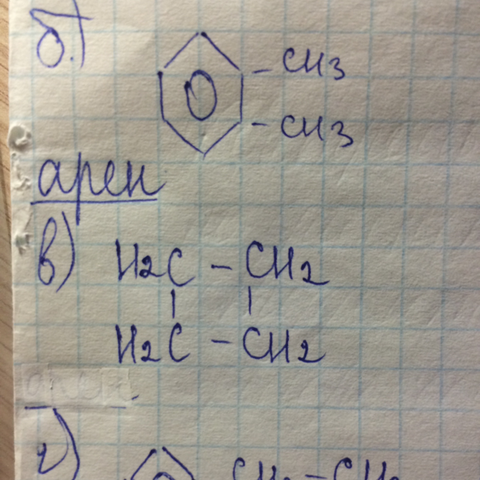 б.)
- CH3
- CH3
арен
в) H2C - CH2
H2C - CH2
г)